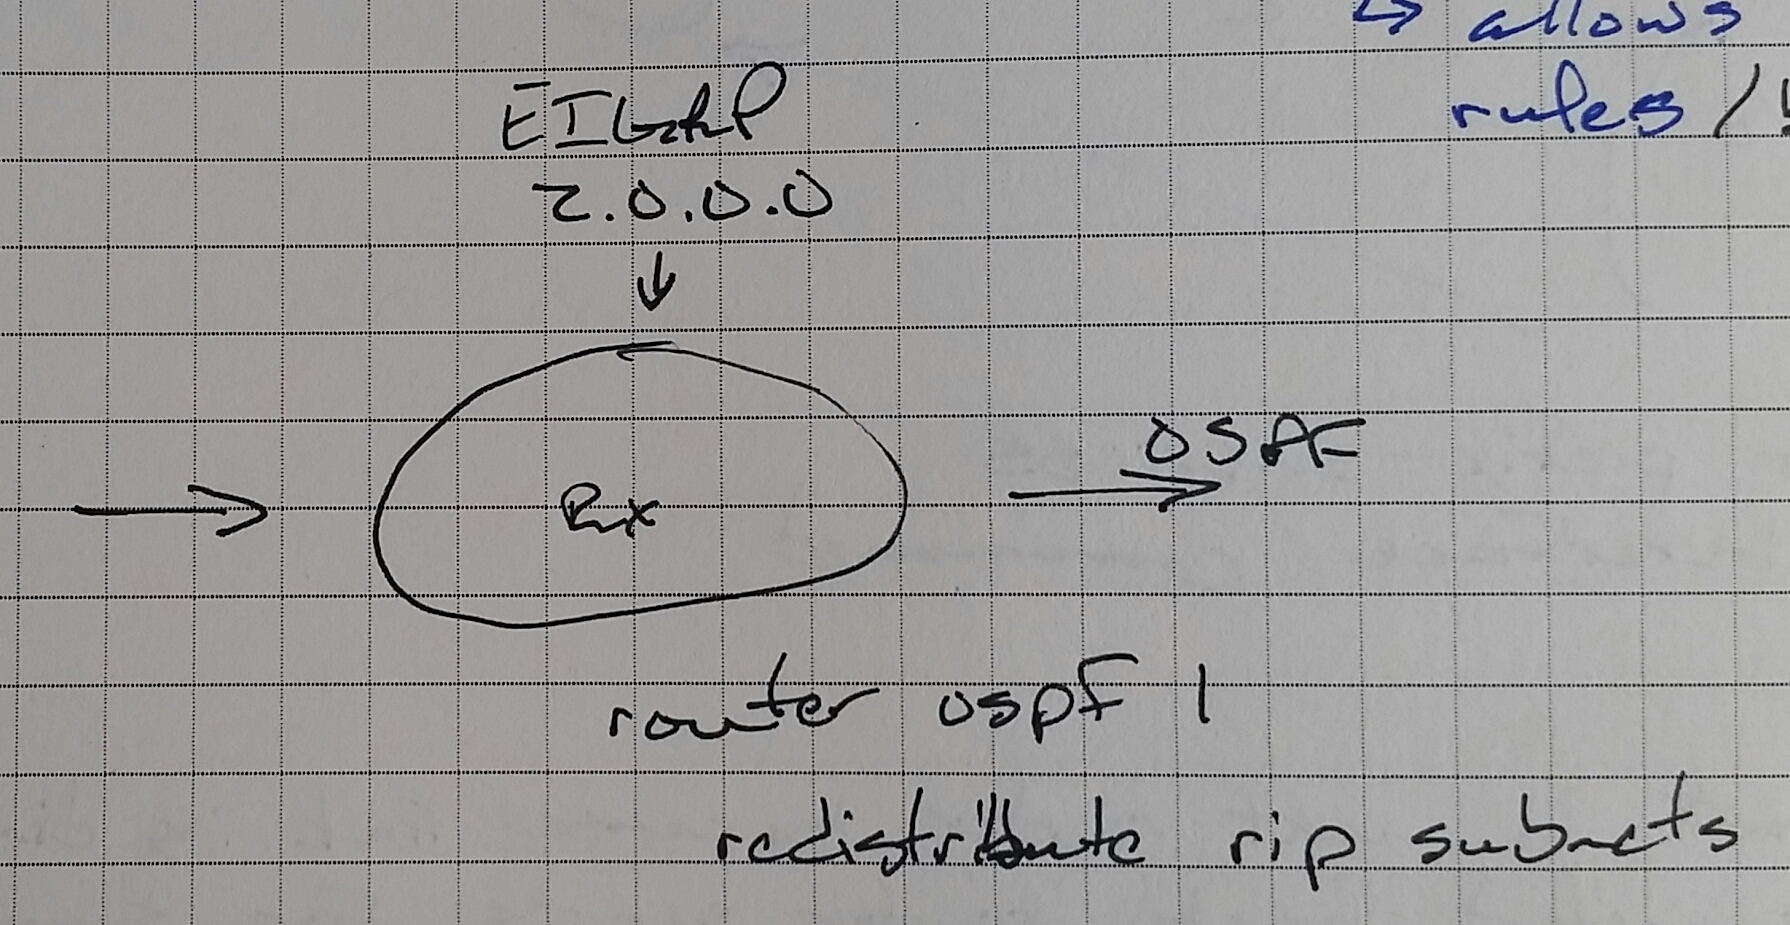 ↳ allows
rules /
EIGRP
2.0.0.0
↓
OSPF
Rx
router ospf 1
redistribute rip subnets